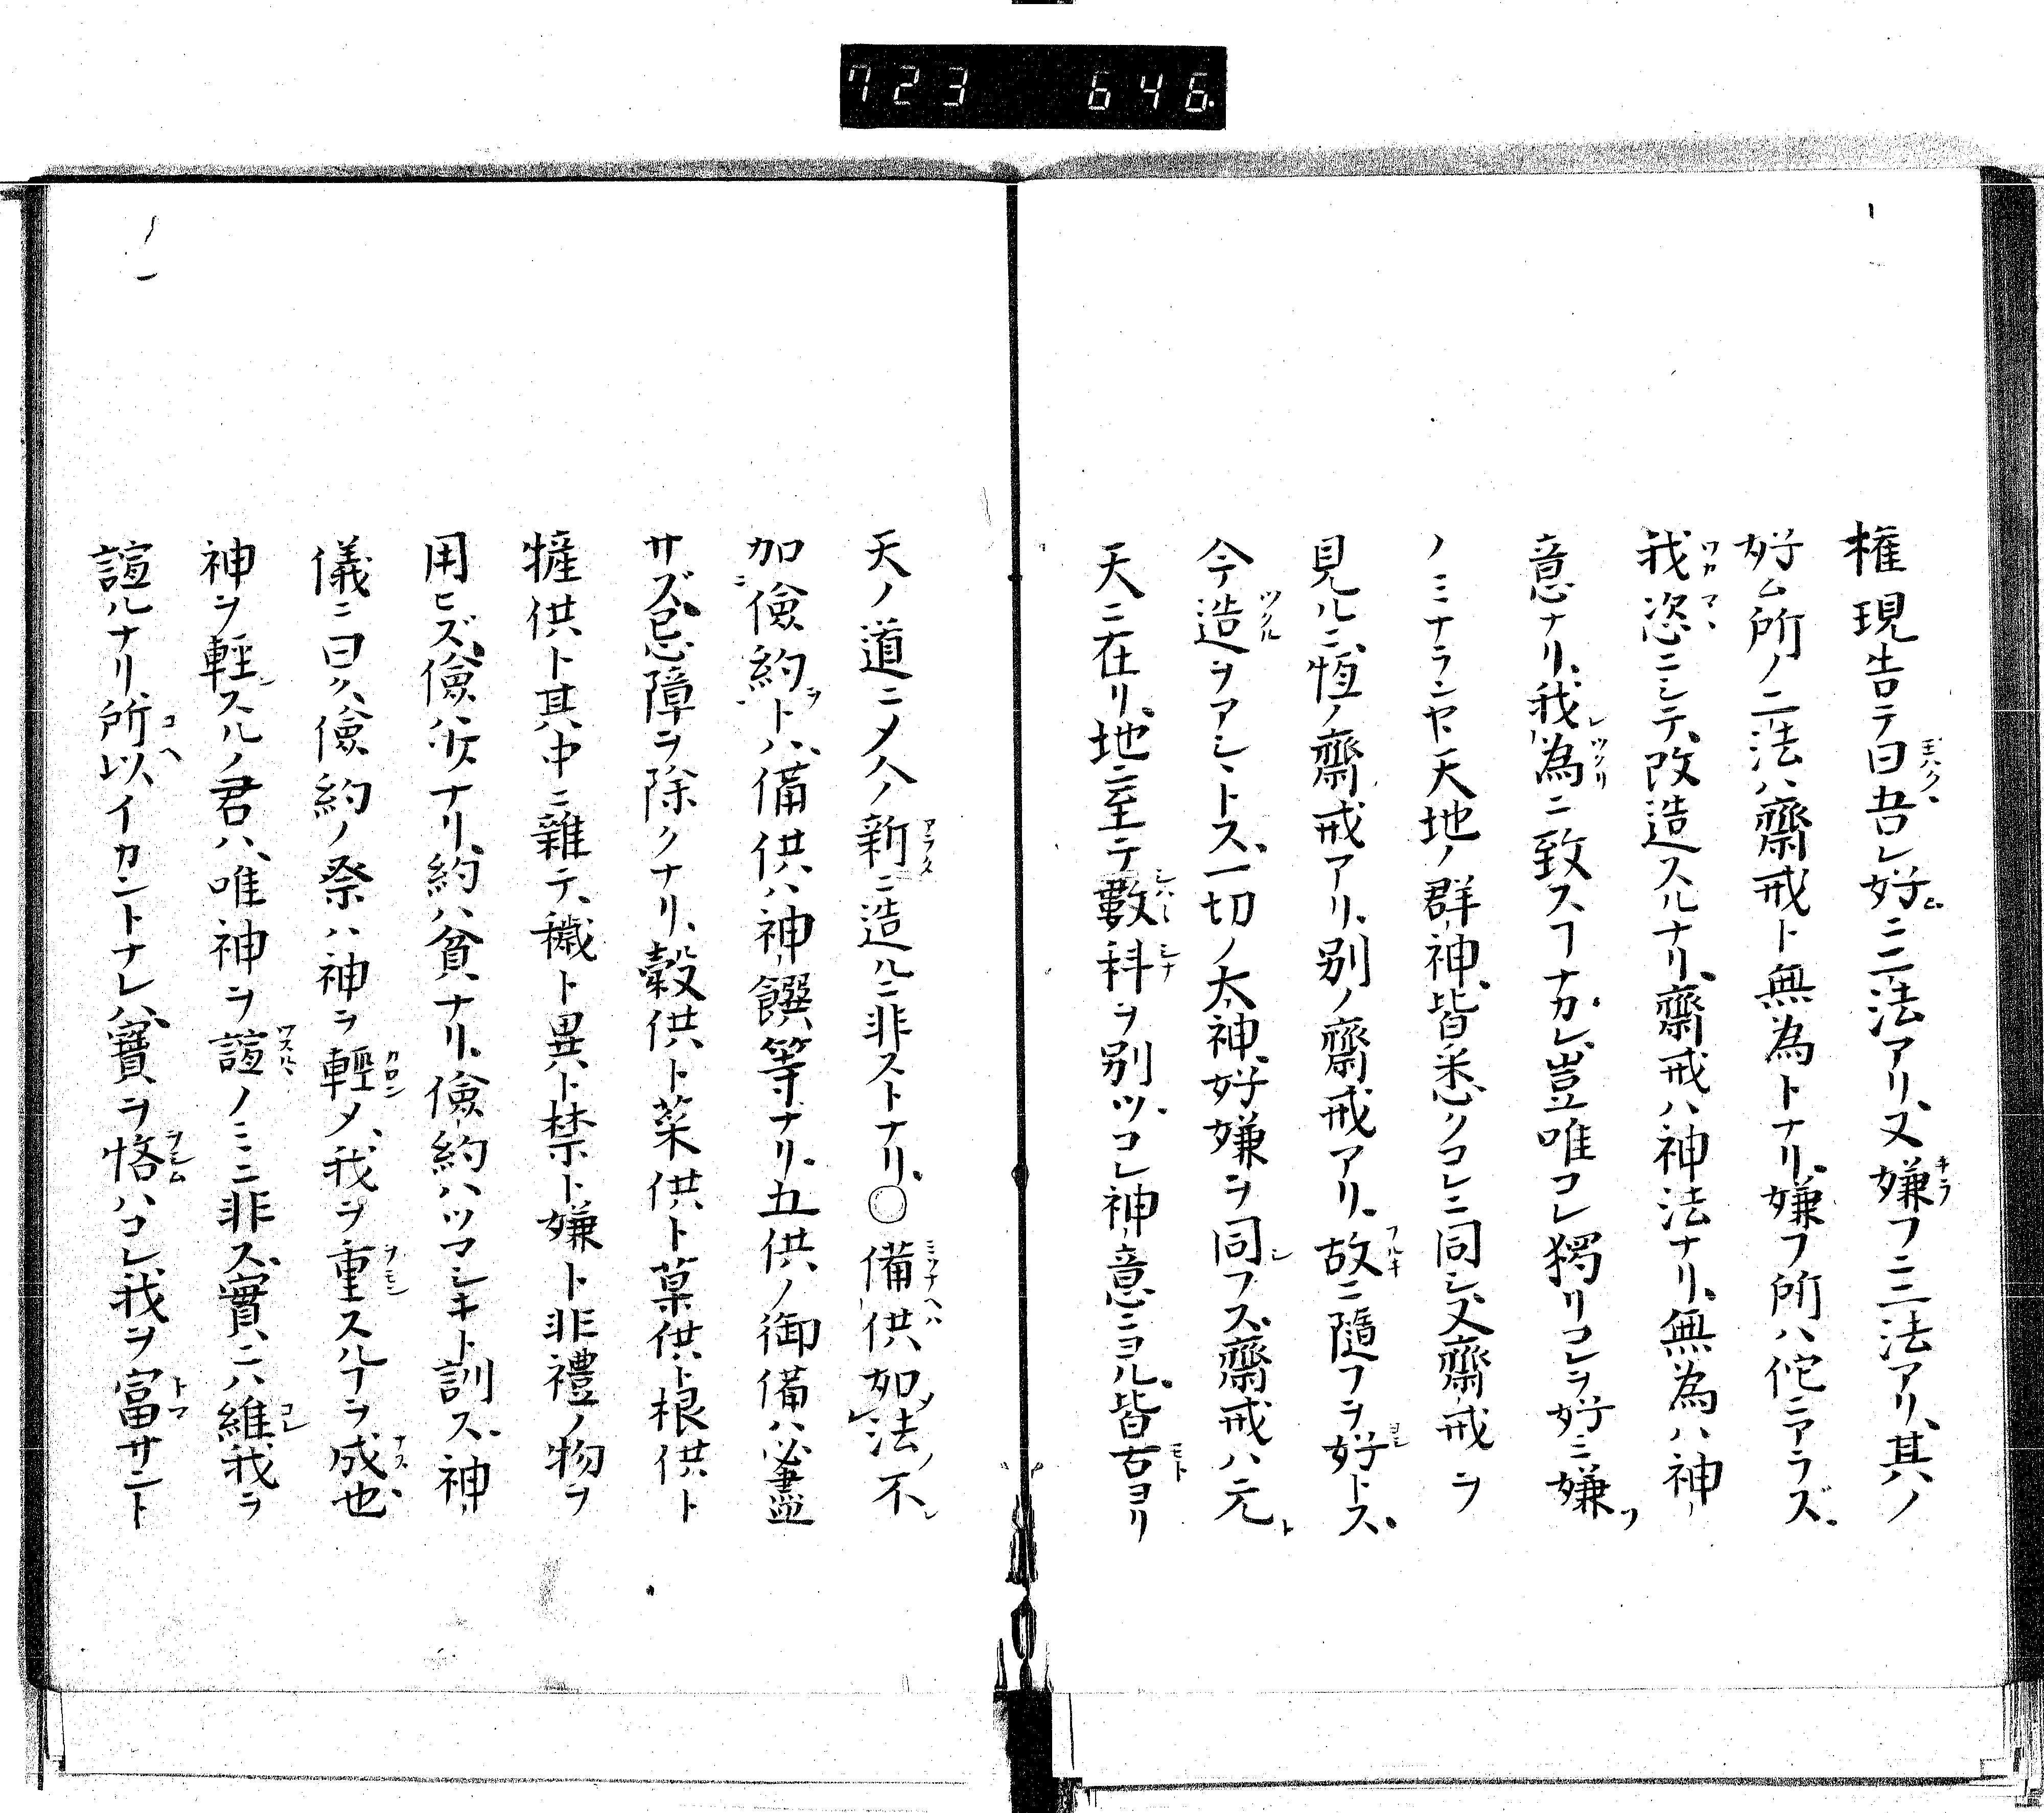 723 646
権現告テ曰吾レ好ニ二法アリ、又嫌フニ二法アリ、其ノ
好ム所ノ二法ハ齋戒ト無為トナリ、嫌フ所ハ佗ニアラズ
我恣ニシテ、改造スルナリ、齋戒ハ神法ナリ、無為ハ神ノ
意ナリ、我為ニ致スヿナカレ、豈唯コレ獨リコレヲ好ミ嫌フ
ノミナランヤ天地ノ群神、皆悉クコレニ同シ、又齋戒ヲ
見ルニ、恆ノ齋戒アリ、別ノ齋戒アリ、故ニ隨フヲ好トス、
今造ヲアシヽトス、一切ノ太神、好嫌ヲ同フス、齋戒ハ元ト
天ニ在リ、地ニ至テ數科ヲ別ツ、コレ神ノ意ニヨル、皆古ヨリ
天ノ道ニメ人ノ新ニ造ルニ非ストナリ、○備供如法ノ不
加儉約トハ、備供ハ神ノ饌等ナリ、五供ノ御備ハ必盡
サズ、忌障ヲ除クナリ、穀供ト菜供ト菓供ト根供ト
㹌供ト其中ニ雜テ、穢ト異ト禁ト嫌ト非禮ノ物ヲ
用ヒズ、儉ハ㳒ナリ、約ハ貧ナリ、儉約ハツマシキト訓ス、神
儀ニ曰ク、儉約ノ祭ハ神ヲ輕メ、我ヲ重スルヿヲ成也
神ヲ輕スルノ君ハ、唯神ヲ諠ノミニ非ス、實ニハ維我ヲ
諠ルナリ、所以イカントナレハ、寶ヲ悋ハコレ我ヲ富サント